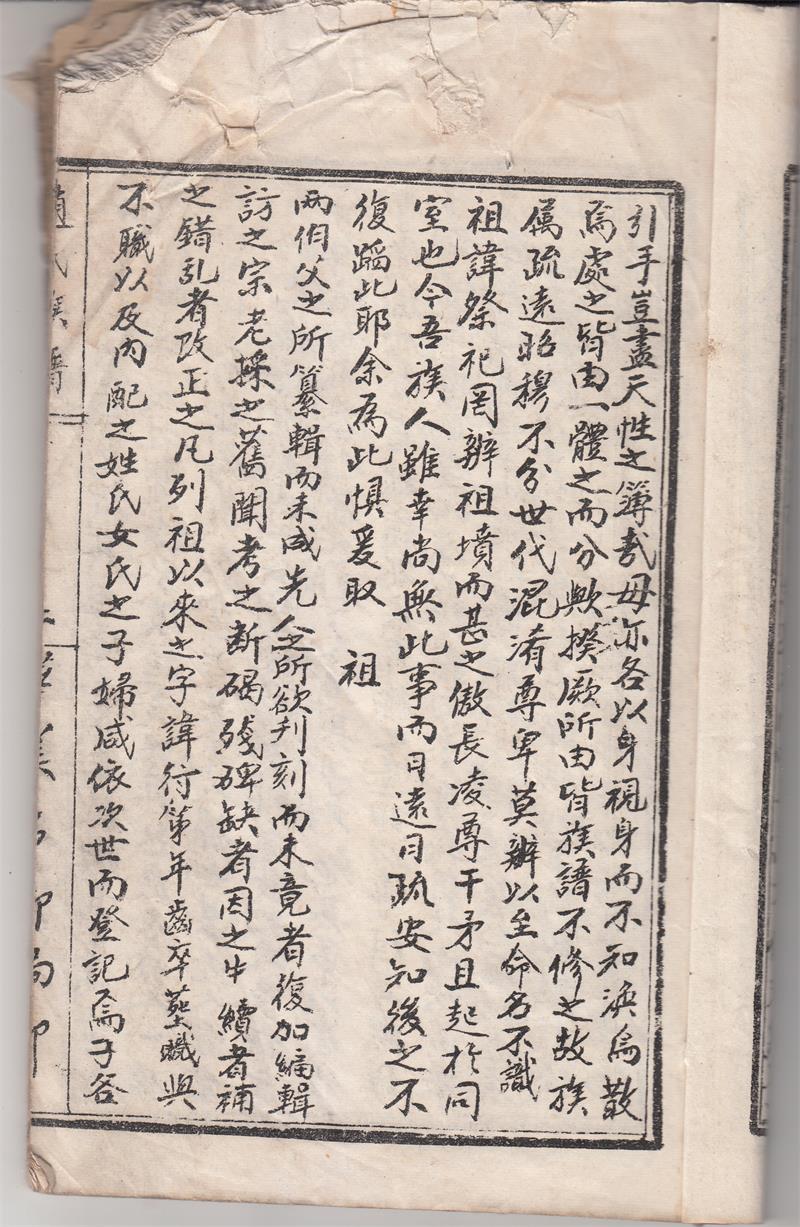 引手豈盡天性之簿哉毋亦各以身視身而不知渙為散
為處之皆由一體之而分歟揆厥所由皆族譜不修之故族
属疏遠昭穆不分世代混淆尊卑莫辨以至命名不識
祖諱祭祀罔辨祖墳而甚之傲長凌尊干矛且起於同
室也今吾族人雖幸尚無此事而日遠日疏安知後之不
復蹈此耶余為此懼爰取 祖
两伯父之所纂輯而未成先人之所欲刋刻而未竟者復加編輯
訪之宗老採之舊聞考之断碣残碑缺者因之失續者補
之錯乱者改正之凡列祖以來之字諱行第年齒卒塟職與
不職以及内配之姓氏女氏之子婦咸依次世而登記焉于各
氏族譜
印局印